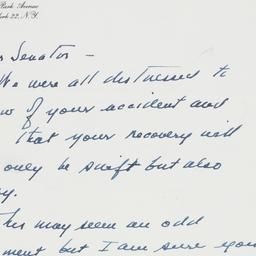 Park Avenue
York 22, N.Y.
Senator -
We were all distressed to
of your accident and
that your recovery will
only be swift but also
may seem an odd
but I am sure you